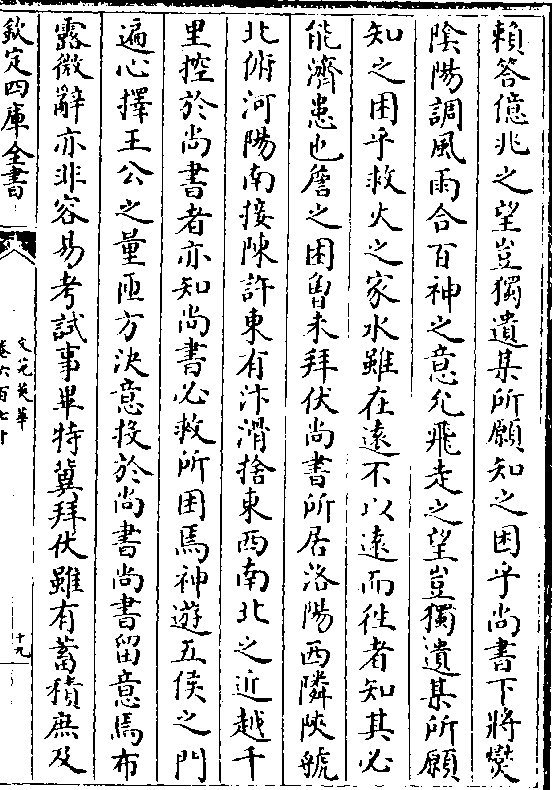 賴答億兆之望豈獨遺某所願知之困乎尚書下將爕
陰陽調風雨合百神之意允飛走之望豈獨遺某所願
知之困乎救火之家水雖在逺不以逺而徃者知其必
能濟患也詹之困魯未拜伏尚書所居洛陽西隣陜虢
北俯河陽南接陳許東有汴滑捨東西南北之近越千
里控於尚書者亦知尚書必救所困焉神遊五侯之門
遍心擇王公之量匝方決意投於尚書尚書留意焉布
露微辭亦非容易考試事畢特冀拜伏雖有蓄積庶及
欽定四庫全書
文苑英華
卷六百七十
十九